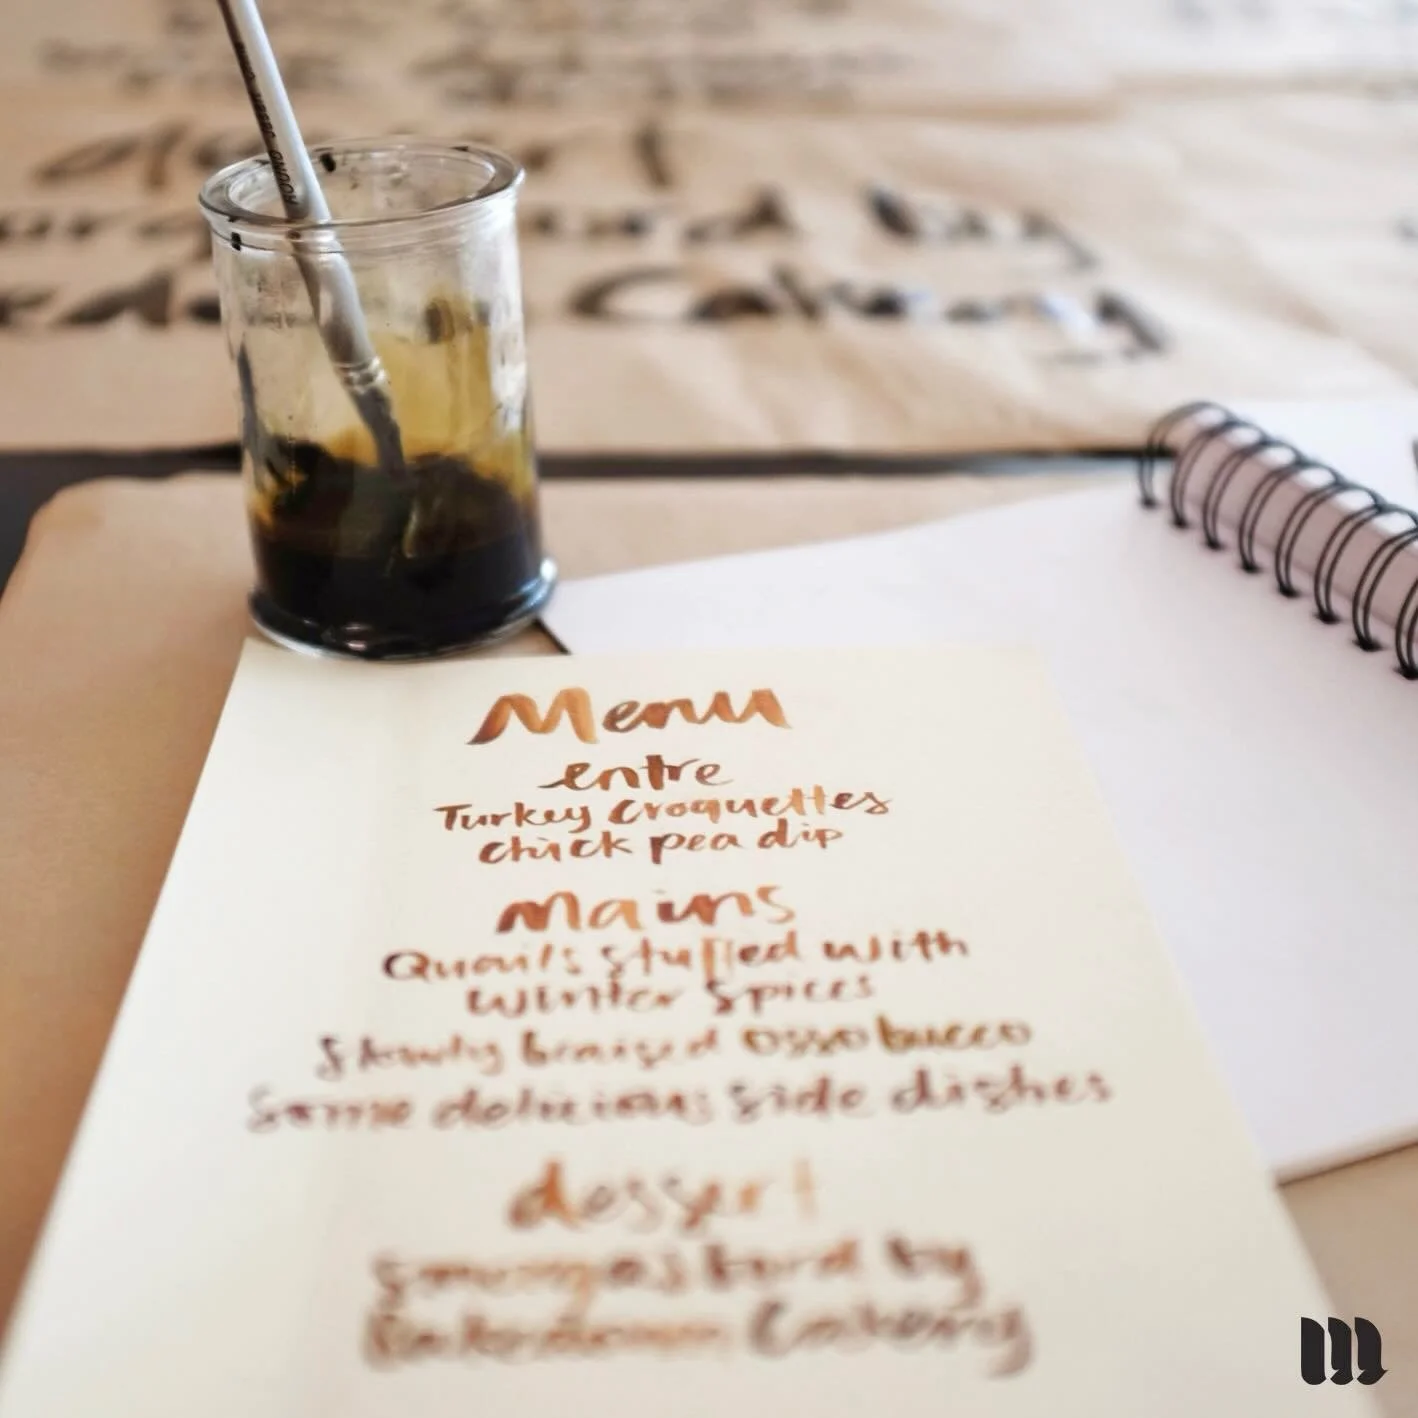 Menu
entre
Turkey Croquettes
chick pea dip
Mains
Quails stuffed with
winter spices
Slowly braised osso bucco
Some delicious side dishes
dessert
smorgasburd by
Cakery